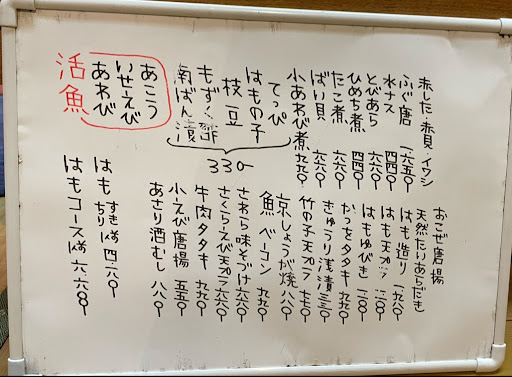 赤した・赤貝・イワシ
ふぐ唐 一六五〇
水ナス 四四〇
とびあら 六六〇
ひめち煮 四四〇
たこ煮 六六〇
ばい貝 六六〇
小あわび煮 九九〇
てっぴ
はもの子
枝豆
もずく酢
南ばん漬
330
あこう
いせえび
あわび
活魚
おこぜ唐揚
天然たいあらだき
はも造り 一九八〇
はも天プラ 一一〇〇
はもゆびき 一一〇〇
かつをタタキ 九九〇
きゅうり浅漬 三三〇
竹の子天プラ 七七〇
涼しょうが焼 八八〇
魚ベーコン 九九〇
さわら味そづけ 六六〇
さくらえび天プラ 六六〇
牛肉タタキ 九九〇
小えび唐揚 五五〇
あさり酒むし 八八〇
はもすき ちり
はもコース